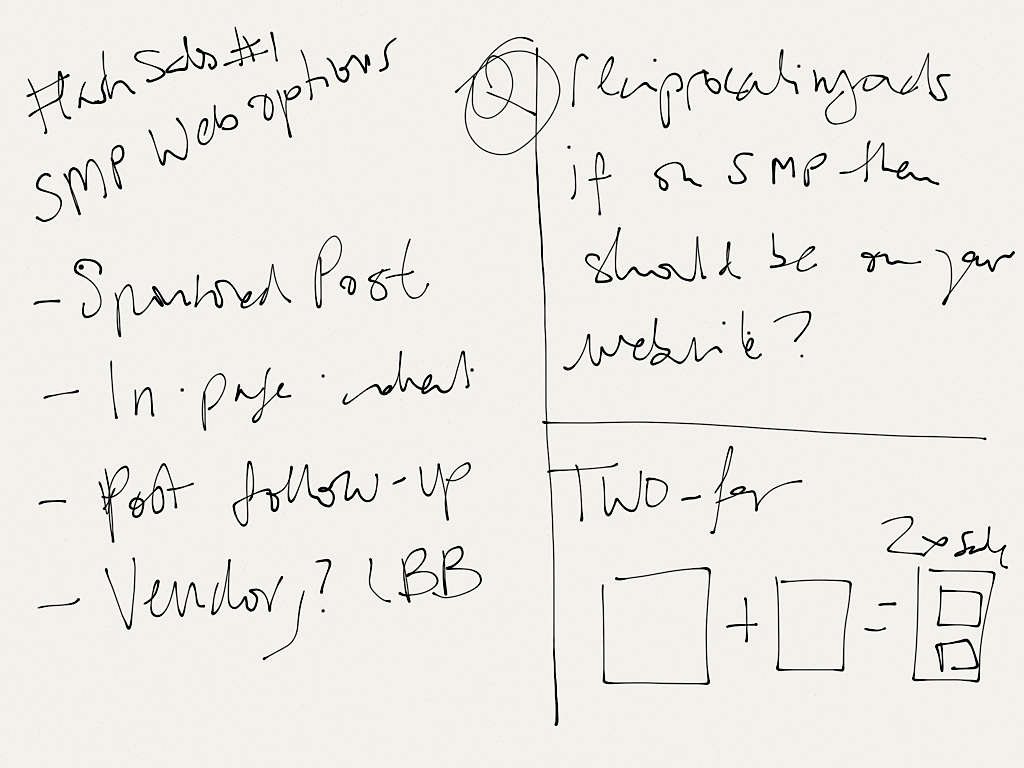 #1
SMP Web options
- Sponsored Post
- In page
- Post follow-up
- Vendor, ? LBB
Q
reciprocating ads
if on SMP then
should be on your
website?
TWO-for
2x
+ =